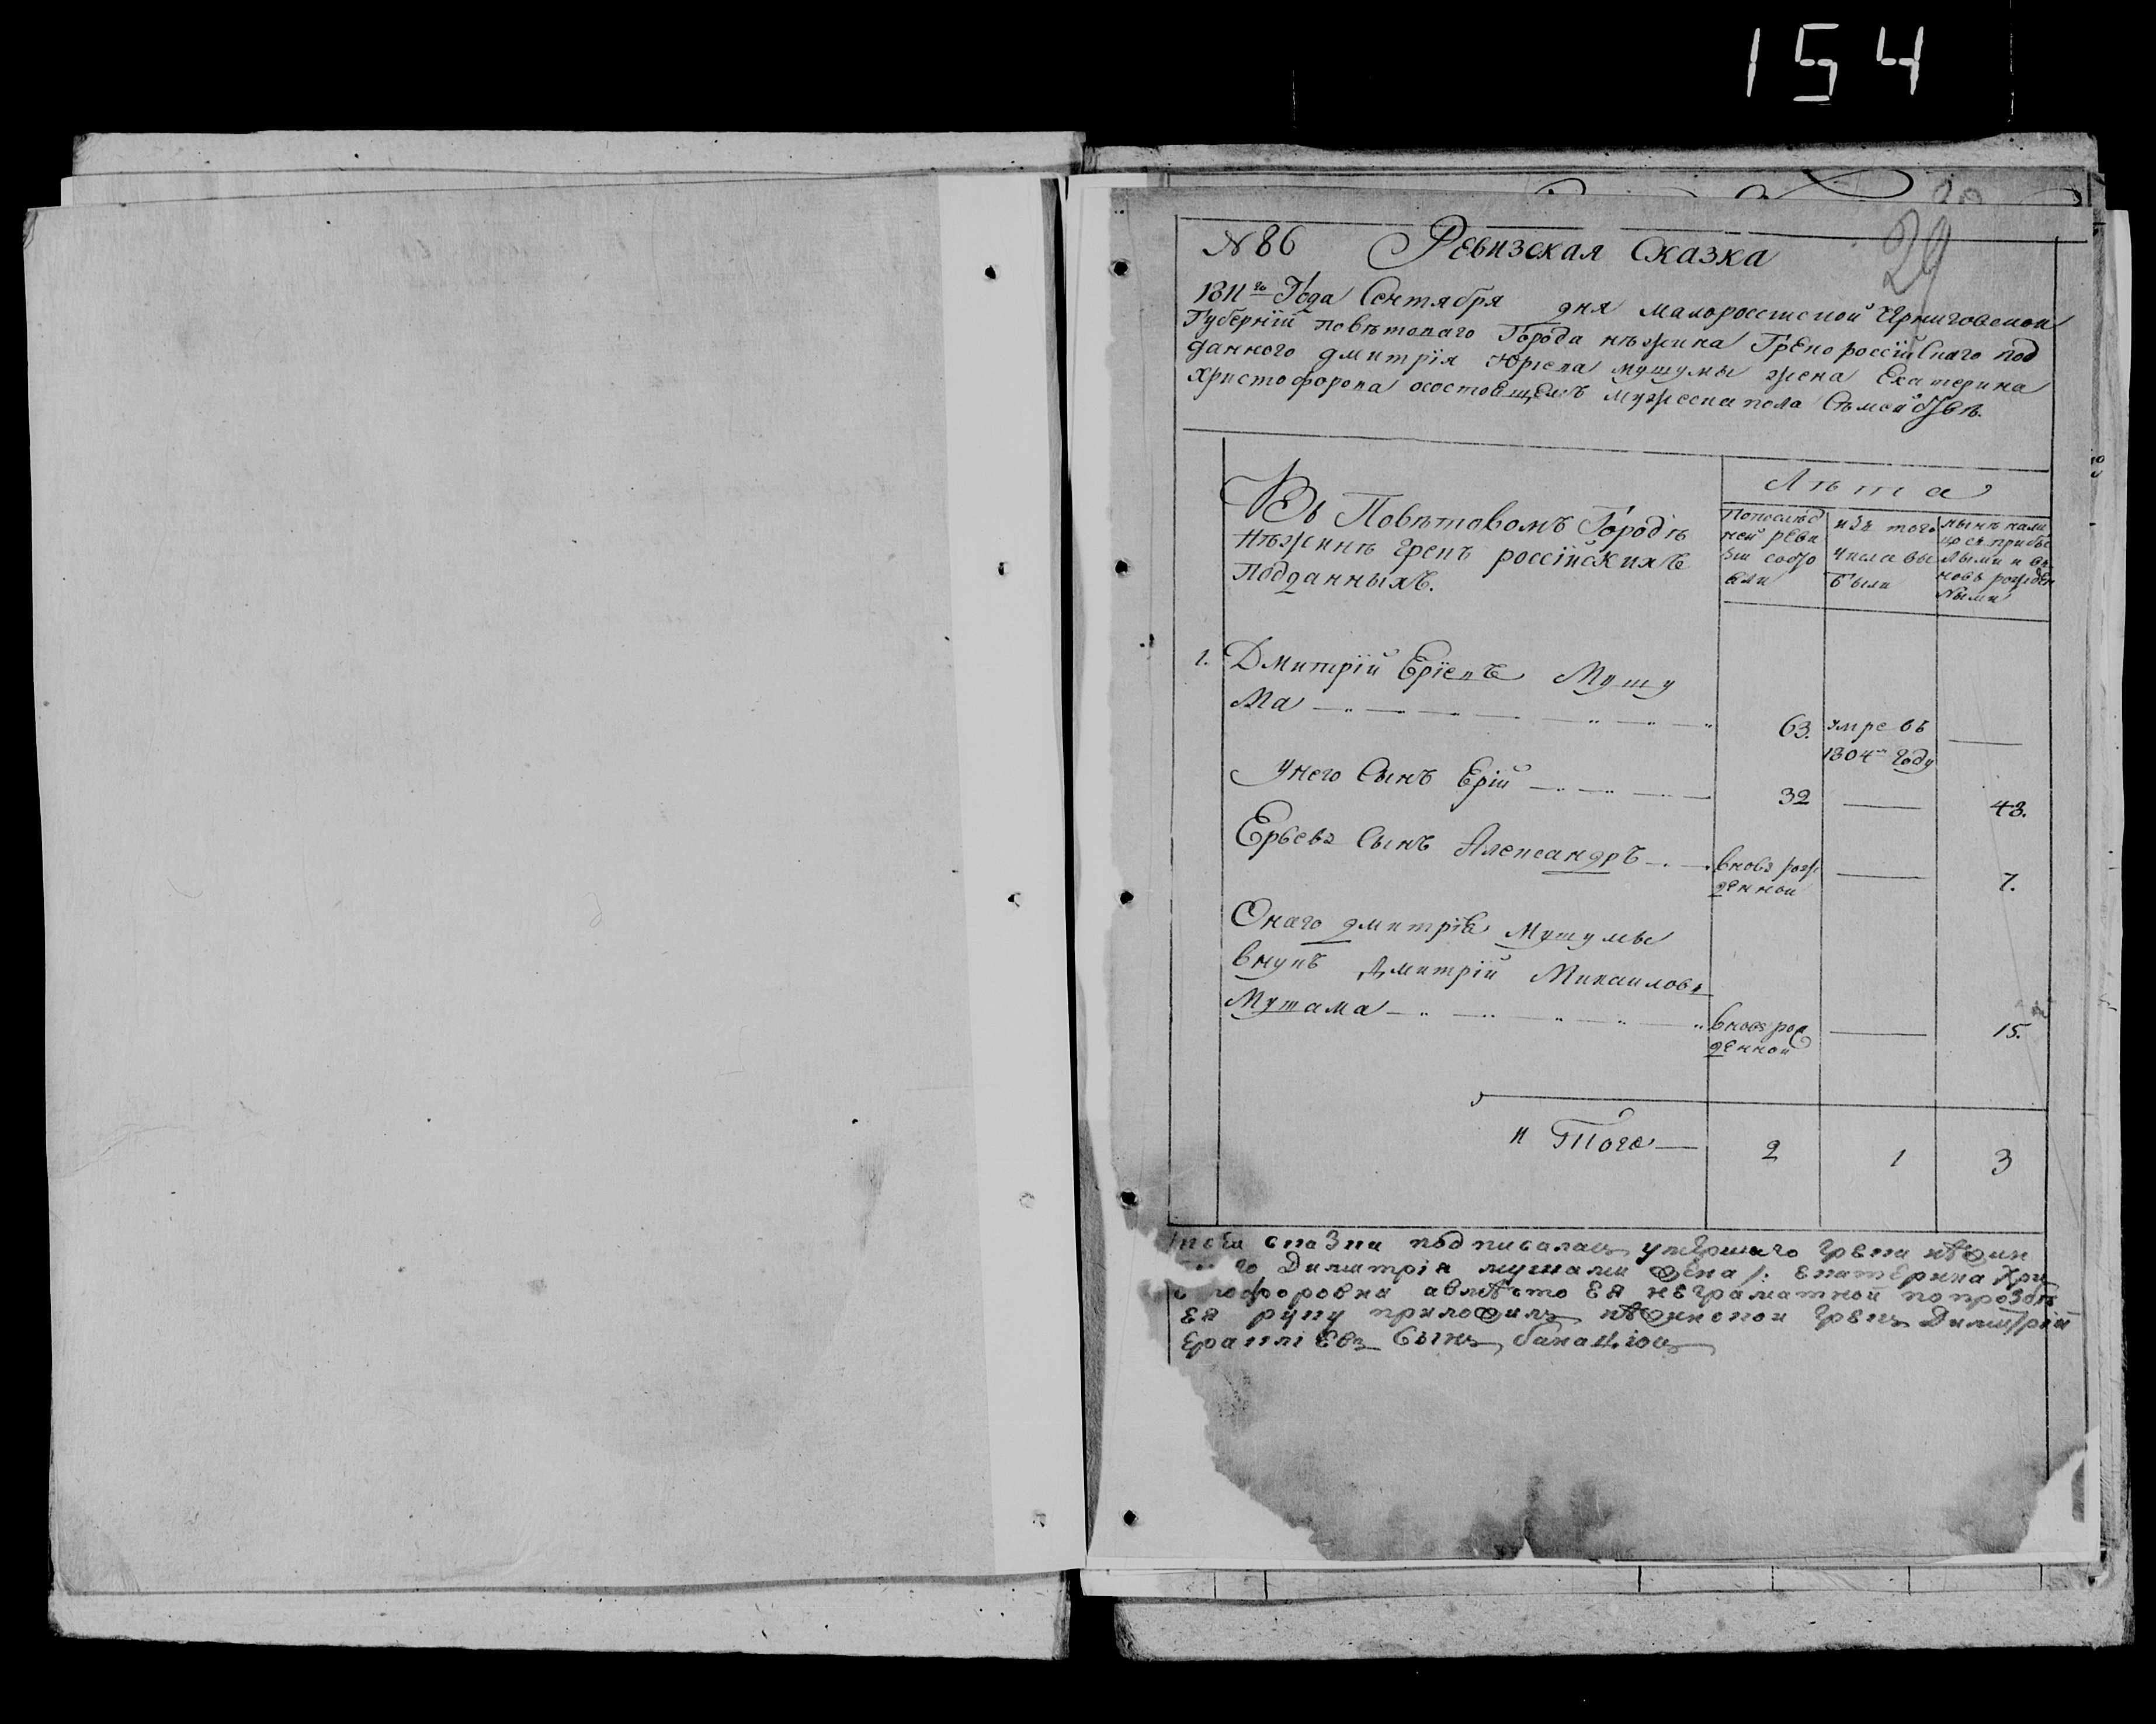 154
29
N 86 Ревизская Сказка
1811го Года Сентября дня малороссиской Чрниговской
Губернїи повѣтоваго Города нѣжина Греко россїйскаго под
данного дмитрїя Юрїева мушумы жена Екатерина
Христофорова осостоящемъ мужеска пола
Лѣта
Въ Повѣтовомъ Городѣ
Нѣжинѣ грекъ россїйскихъ
Подданныхъ.
Попослѣд
ней реви
зіи состо
яли
изъ того
числа вы
были
нынѣ нали
цо съ прибы
лыми и в
новь рожден
ными
1. Дмитрїй Ерїевъ Мушу
Ма 63. умре въ
1804м году
Унего Сынъ Ерїй 32 43.
Ерьевъ Сынъ Александръ вновь рож
денной 7.
Онаго дмитрїя Мушумы
внукъ Дмитрїй Михаиловъ
Мушама вновь рож
денной 15.
и Того 2 1 3
сказки подписалась умершаго грека нѣжин
го Димитрія мушами жена /: Екатерина Хри
тофоровна авмѣсто Ея неграматной попрозбѣ
Ея руку приложилъ нѣжинской грекъ Димитрій
Ераклїевъ Сынъ